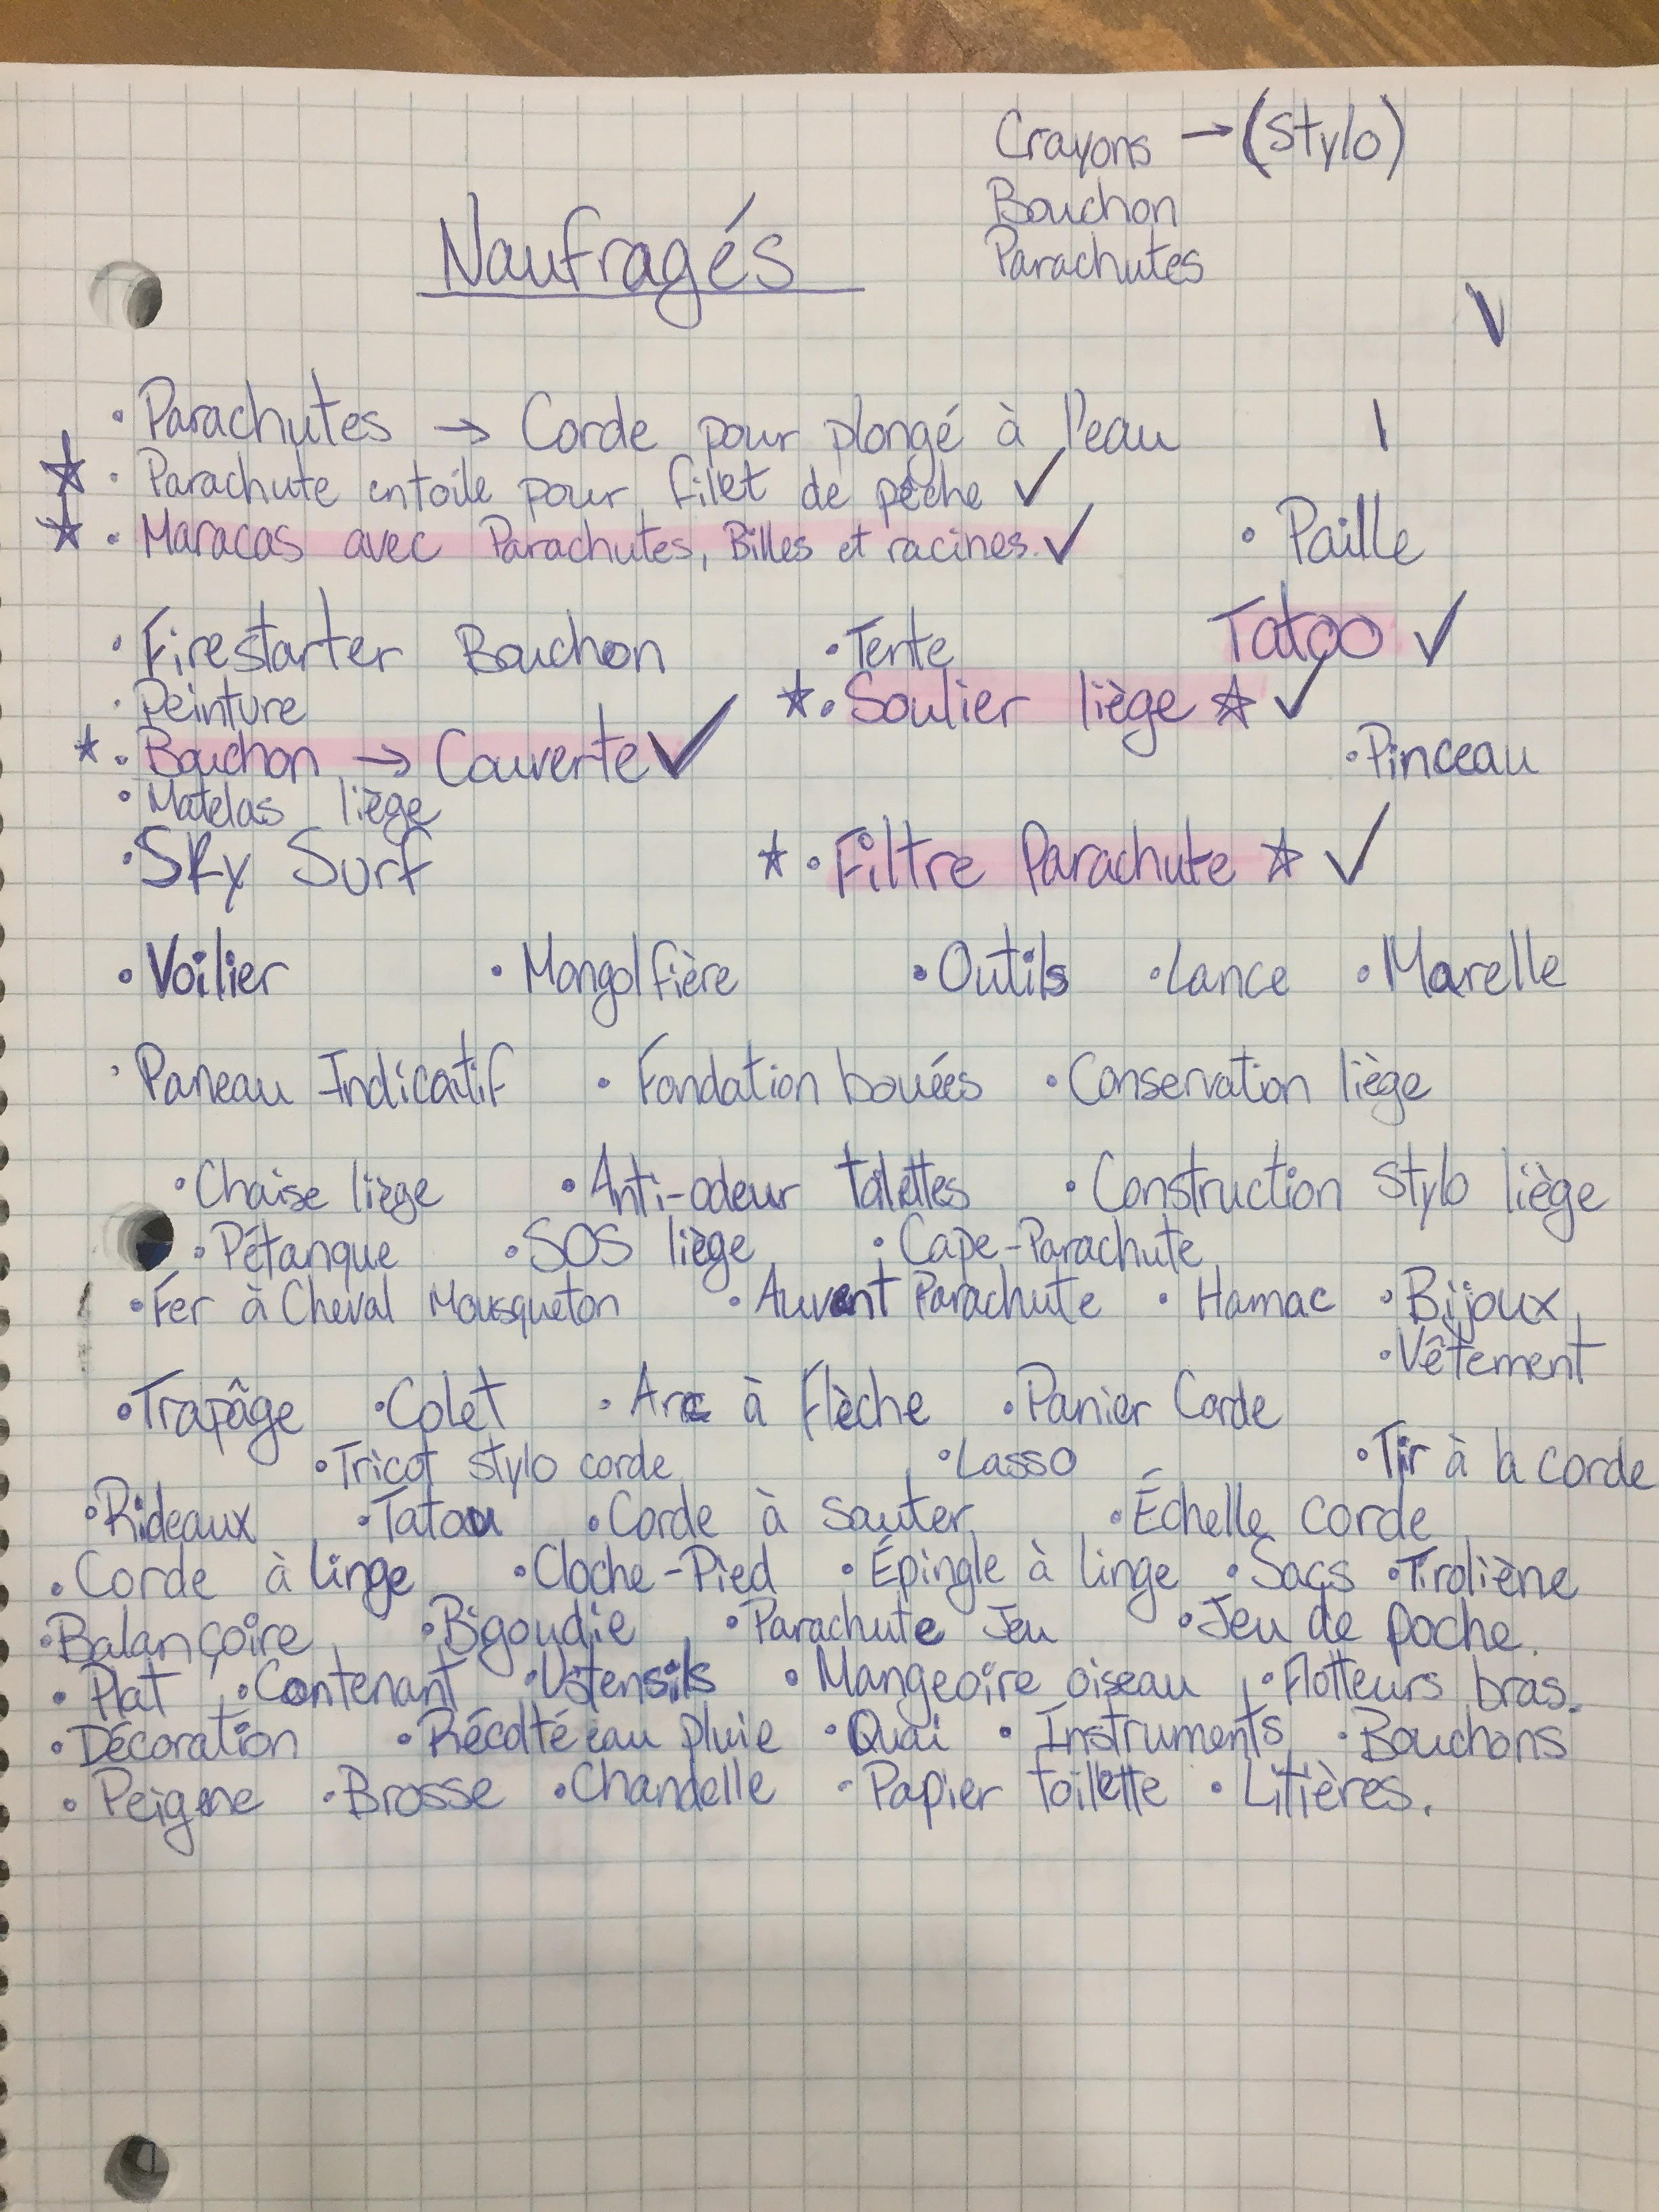 Crayons → (Stylo)
Bouchon
Naufragés
Parachutes
• Parachutes → Corde pour plongé à l'eau
☆ • Parachute entoile pour filet de pêche ✓
☆ • Maracas avec Parachutes, Billes et racines. ✓ • Paille
• Firestarter Bouchon • Tente Tatoo ✓
• Peinture ☆ • Soulier liège ☆ ✓
☆ • Bouchon → Couverte ✓ • Pinceau
• Matelas liège
• Sky Surf ☆ • Filtre Parachute ☆ ✓
• Voilier • Mongolfière • Outils • Lance • Marelle
• Paneau Indicatif • Fondation bouées • Conservation liège
• Chaise liège • Anti-odeur toilettes • Construction stylo liège
• Pétanque • SOS liège • Cape-Parachute
• Fer à Cheval Mousqueton • Auvent Parachute • Hamac • Bijoux
• Vêtement
• Trapâge • Colet • Arc à flèche • Panier Corde
• Tricot stylo corde • Lasso • Tir à la corde
• Rideaux • Tatou • Corde à sauter • Échelle corde
• Corde à linge • Cloche-Pied • Épingle à linge • Sacs • Tirolière
• Balançoire • Bigoudie • Parachute Jeu • Jeu de poche.
• Plat • Contenant • Ustensils • Mangeoire oiseau • Flotteurs bras.
• Décoration • Récolté eau pluie • Quai • Instruments • Bouchons
• Peigne • Brosse • Chandelle • Papier toilette • Litières.